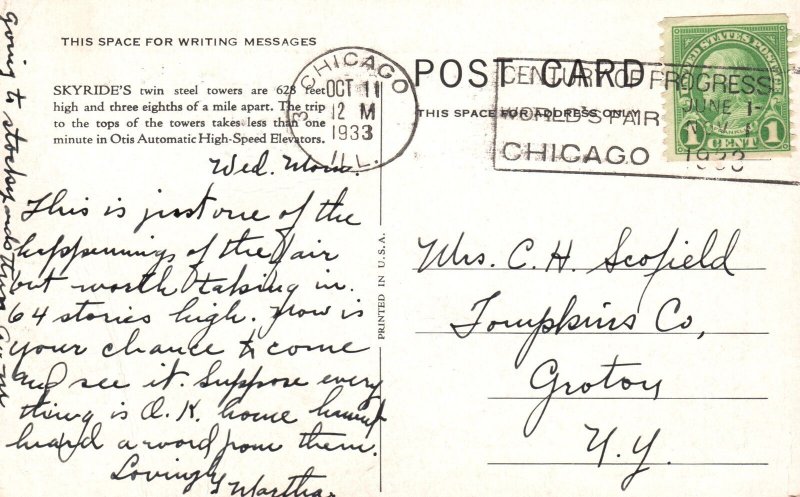 THIS SPACE FOR WRITING MESSAGES
SKYRIDE'S twin steel towers are 628 feet
high and three eighths of a mile apart. The trip
to the tops of the towers takes less than one
minute in Otis Automatic High-Speed Elevators.
Wed. Morn.
This is just one of the
happenings of the fair
but worth taking in.
64 stories high. Now is
your chance to come
and see it. Suppose every
thing is O.K. home haven't
heard a word from them.
Lovingly
Martha.
going to stockyards
PRINTED IN U.S.A.
POST CARD
THIS SPACE FOR ADDRESS ONLY
CHICAGO
3
OCT 11
12 M
1933
ILL.
CENTURY OF PROGRESS
WORLD'S FAIR
CHICAGO
JUNE 1-
NOV. 1
1933
UNITED STATES POSTAGE
FRANKLIN
1 CENT 1
Mrs. C. H. Scofield
Tompkins Co,
Groton
N.Y.